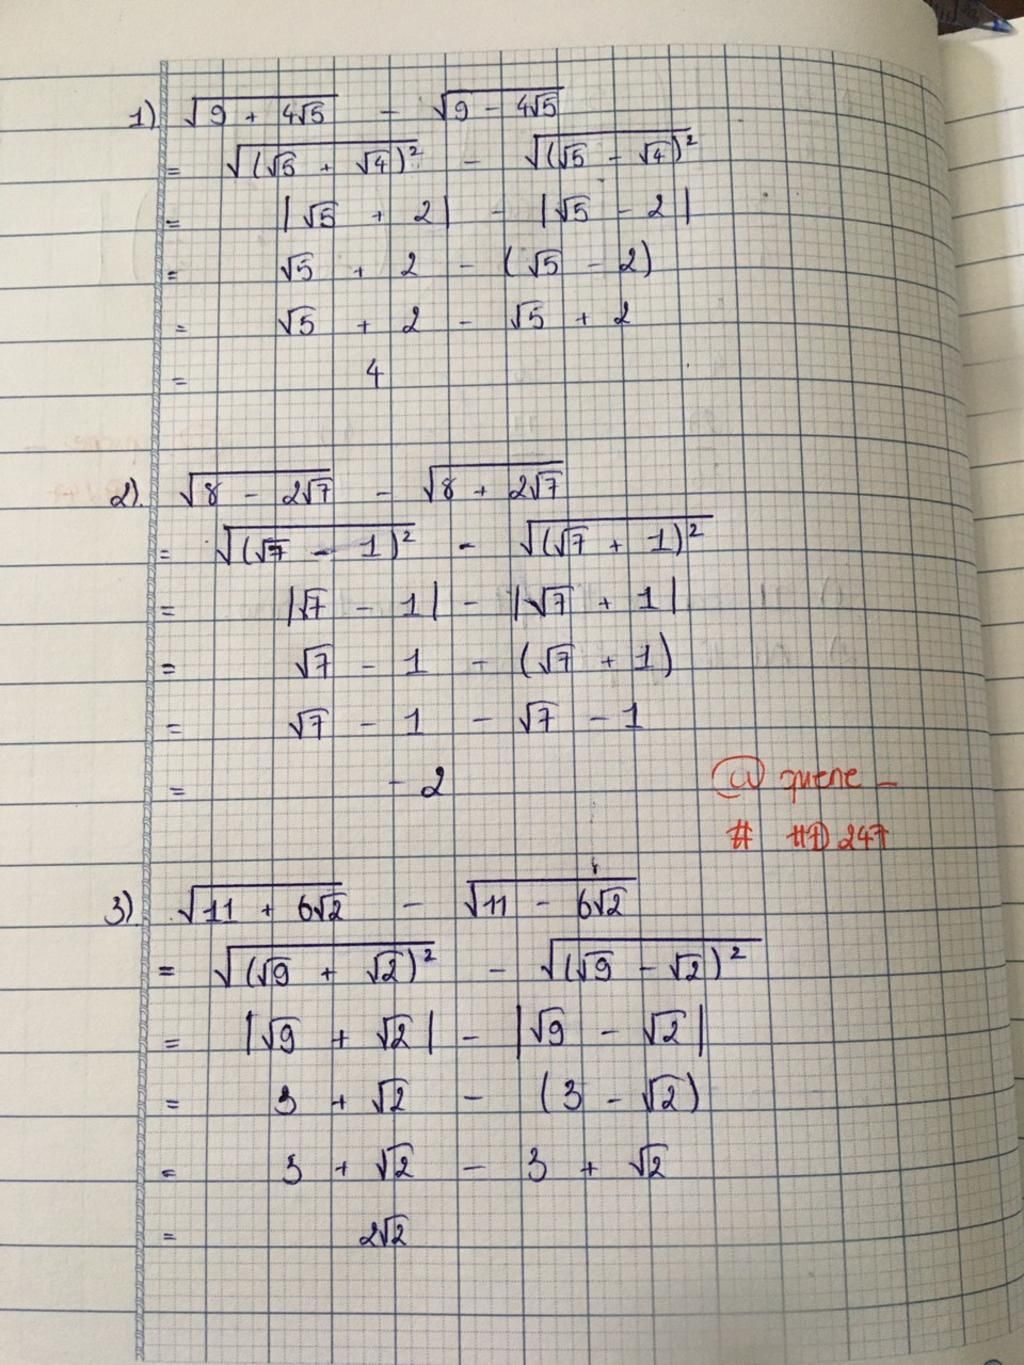 1) √(9 + 4√5) - √(9 - 4√5)
= √((√5 + √4)²) - √((√5 - √4)²)
= |√5 + 2| - |√5 - 2|
= √5 + 2 - (√5 - 2)
= √5 + 2 - √5 + 2
= 4
2). √(8 - 2√7) - √(8 + 2√7)
= √((√7 - 1)²) - √((√7 + 1)²)
= |√7 - 1| - |√7 + 1|
= √7 - 1 - (√7 + 1)
= √7 - 1 - √7 - 1
= - 2
# HD 247
3) √(11 + 6√2) - √(11 - 6√2)
= √((√9 + √2)²) - √((√9 - √2)²)
= |√9 + √2| - |√9 - √2|
= 3 + √2 - (3 - √2)
= 3 + √2 - 3 + √2
= 2√2